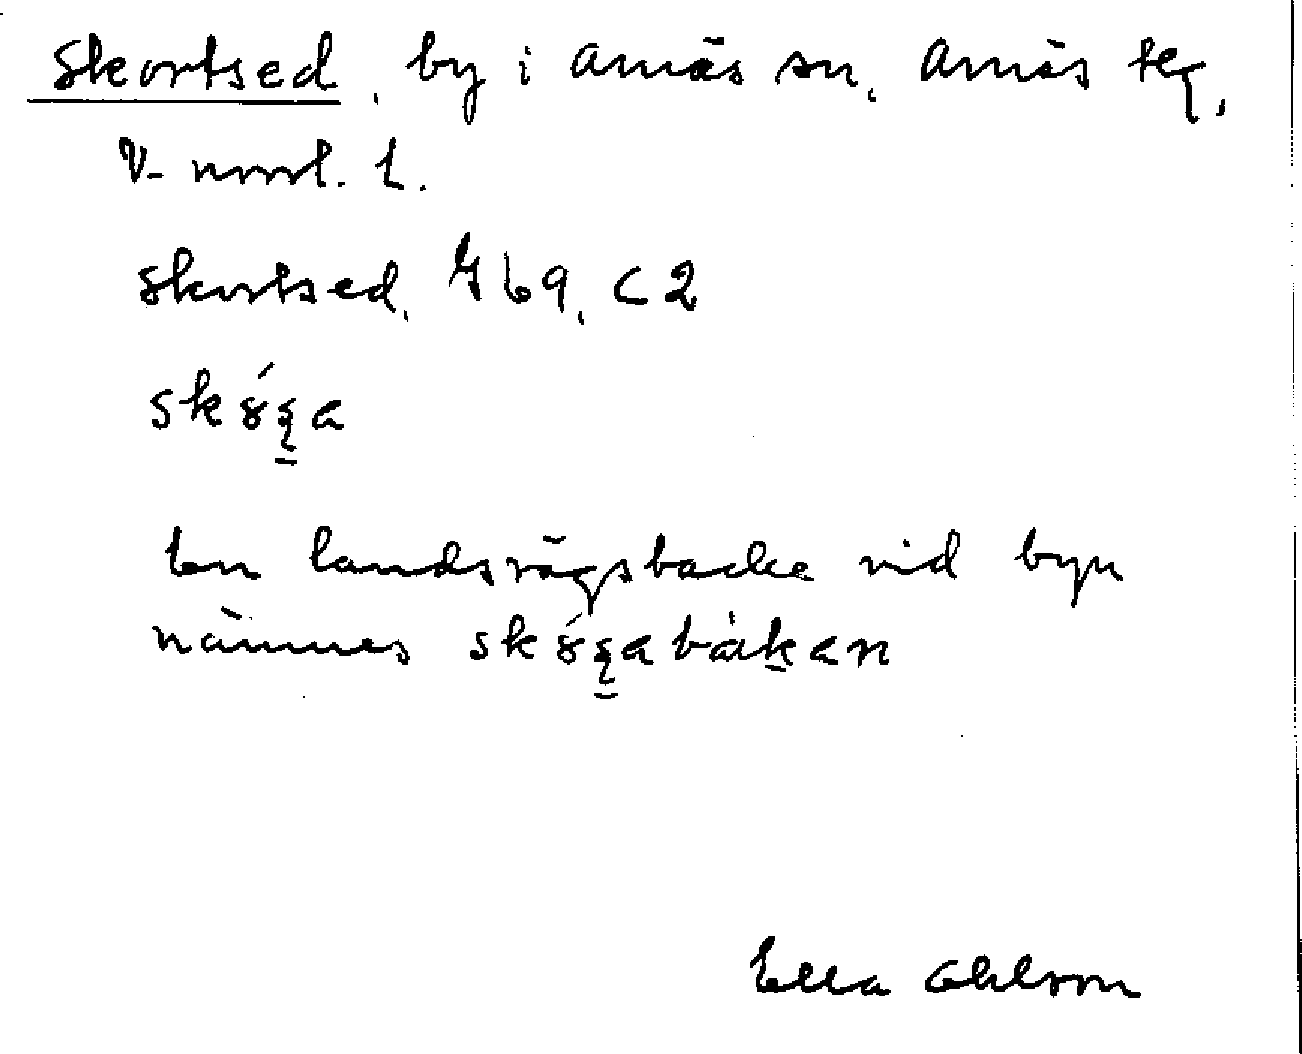 Skortsed, by i Arnäs sn, Arnäs tg,
V-norrl. l.
Skortsed, G 69, C 2
En landsvägsbacke vid byn
nämnes
Ella Ohlson